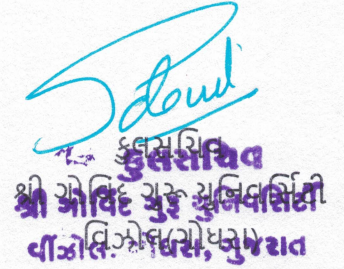 કુલસચિવ
કુલસચિવ
શ્રી ગોવિંદ ગુરૂ યુનિવર્સિટી
શ્રી ગોવિંદ ગુરૂ યુનિવર્સિટી
વિંઝોલ(ગોધરા)
વીંઝોલ. ગોધરા, ગુજરાત